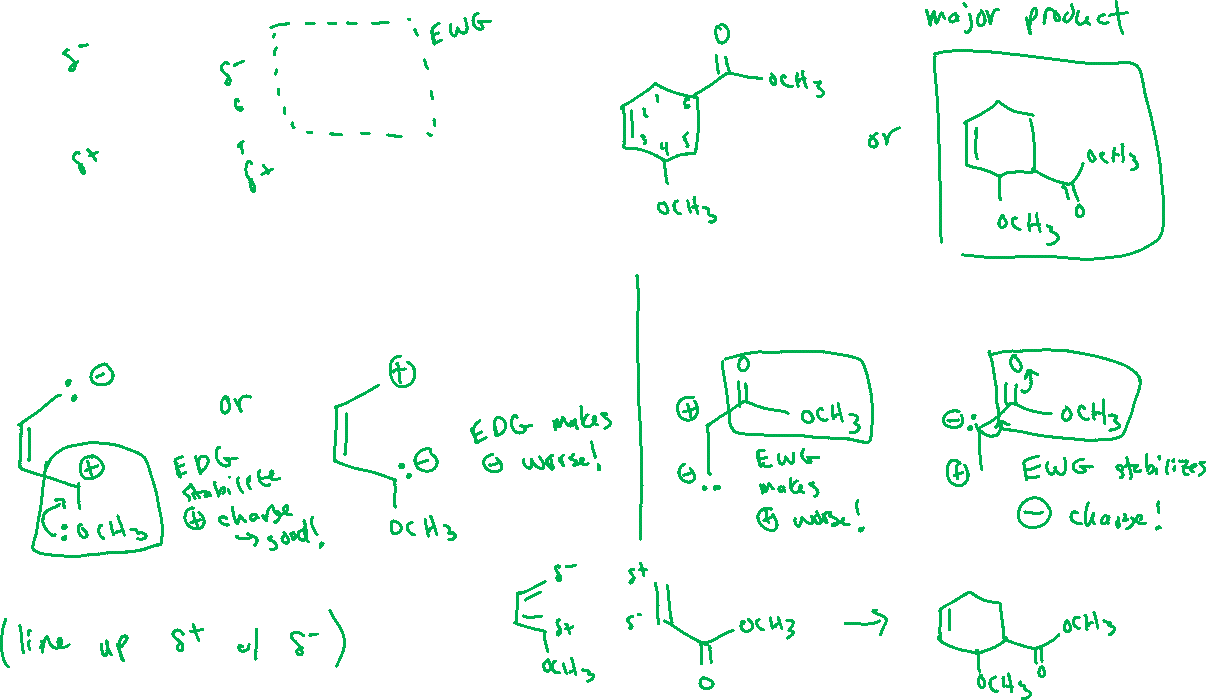 δ⁻
δ⁺
δ⁻
δ⁺
EWG
O
OCH3
1
2
3
4
5
6
OCH3
or
major product
OCH3
O
OCH3
⊖
⊕
:OCH3
EDG
stabilize
⊕ charge
→ good!
or
⊕
:⊖
OCH3
EDG makes
⊖ worse!
O
OCH3
⊕
⊖
EWG
makes
⊕ worse!
O
OCH3
⊖:
⊕
EWG stabilizes
⊖ charge!
(line up δ⁺ w/ δ⁻)
δ⁻
δ⁺
OCH3
δ⁺
δ⁻
OCH3
O
→
OCH3
O
OCH3